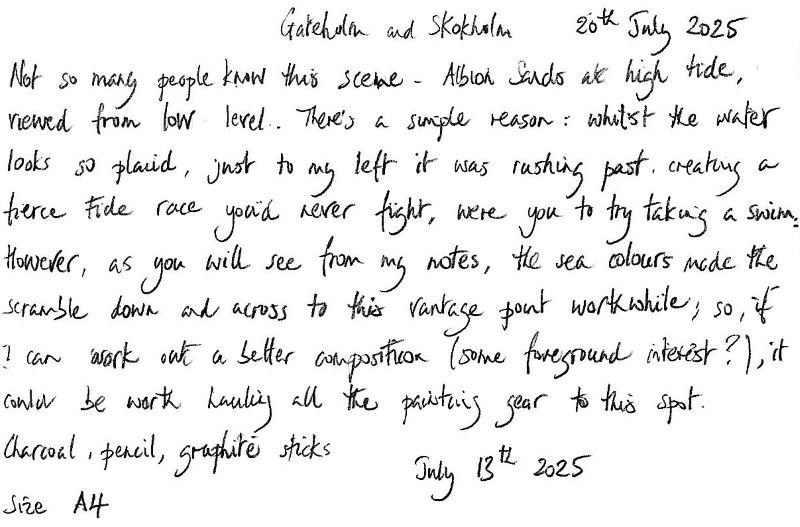 Gateholm and Skokholm 20th July 2025
Not so many people know this scene - Albion Sands at high tide,
viewed from low level. There's a simple reason: whilst the water
looks so placid, just to my left it was rushing past, creating a
fierce tide race you'd never fight, were you to try taking a swim.
However, as you will see from my notes, the sea colours made the
scramble down and across to this vantage point worthwhile; so, if
I can work out a better composition (some foreground interest?), it
could be worth hauling all the painting gear to this spot.
Charcoal, pencil, graphite sticks
July 13th 2025
Size A4